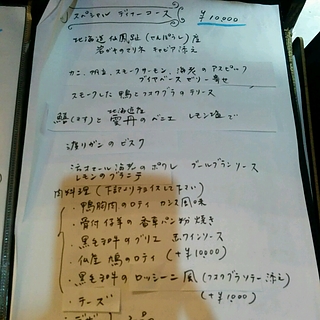 スペシャル ディナーコース
¥10,000
北海道 仙鳳趾(せんぽうし)産
岩がキのマリネ キャビア添え
カニ、帆立、スモークサーモン、海老のアスピック
ブイヤベースゼリー寄せ
スモークした鴨とフォアグラのテリーヌ
北海道産
鱚(キス)と雲丹のベニエ レモン塩で
渡りガニのビスク
オマール海老のポワレ ブールブランソース
レモンのグラニテ
肉料理(下記よりチョイスして下さい)
・鴨胸肉のロティ カシス風味
・骨付仔羊の香草パン粉焼き
・黒毛和牛のグリエ 赤ワインソース
・仏産 鳩のロティ (+¥1,000)
・黒毛和牛のロッシーニ風(フォアグラソテー添え)
(+¥1,000)
・チーズ
・デザート